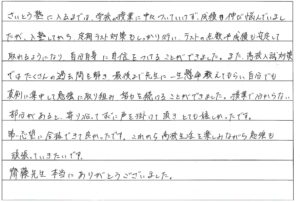 さいとう塾に入るまでは、学校の授業に中々ついていけず、成績も伸び悩んでいまし
たが、入塾してから、定期テスト対策もしっかり行い、テストの点数や成績も安定して
取れるようになり、自分自身に自信をつけることができました。また、高校入試対策
ではたくさんの過去問を解き、最後まで先生に一生懸命教えてもらい、自分でも
真剣に集中して勉強に取り組み、努力を続けることができました。授業で分からない
部分があると、寄り添って下に声を掛けて頂きとても嬉しかったです。
第一志望に合格できて良かったです。これから高校生活を楽しみながら勉強も
頑張っていきたいです。
齋藤先生 本当にありがとうございました。